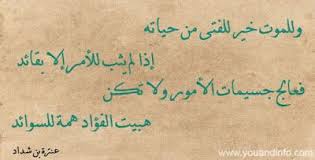 وللموت خير للفتى من حياته
إذا لم يثب للأمر إلا بقائد
فعالج جسيمات الأمور ولا تكن
هبيت الفؤاد همة للسوائد
عنترة بن شداد
www.youandinfo.com